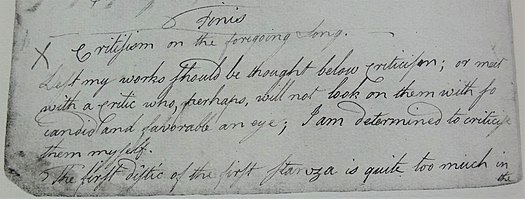 Finis
X Critisism on the foregoing Song.
Lest my works should be thought below criticism; or meet
with a critic who, perhaps, will not look on them with so
candid and favorable an eye; I am determined to criticise
them myself.
The first distic of the first stanza is quite too much in
the